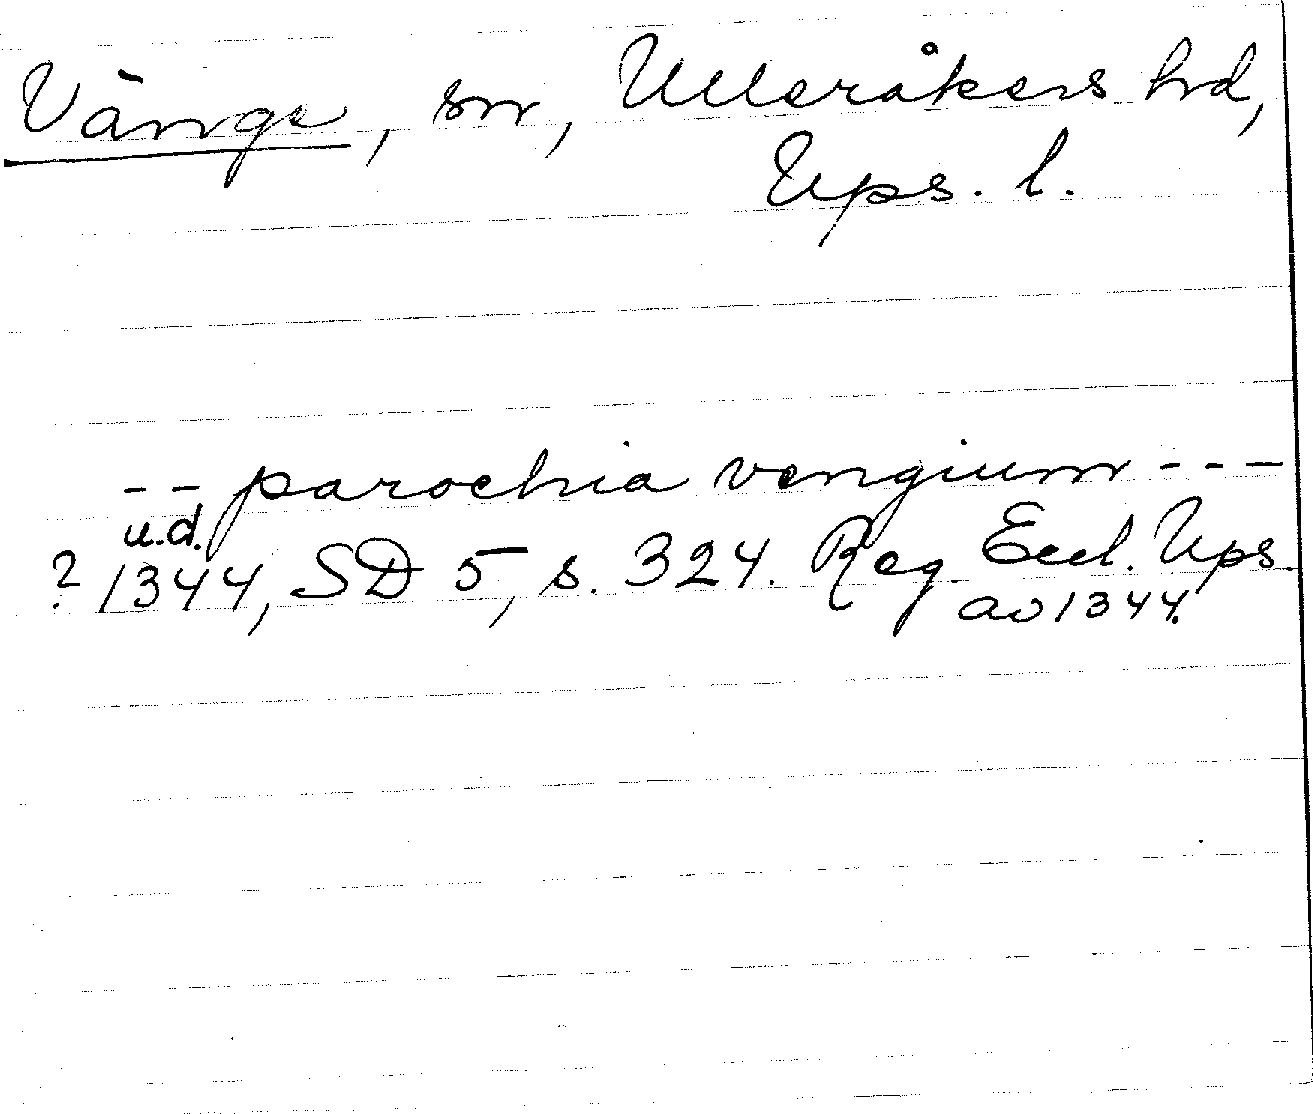 Vänge, sn, Ulleråkers hd,
Ups. l.
-- parochia vengium ---
u.d.
? 1344, SD 5, s. 324. Reg Eccl. Ups.
av 1344.